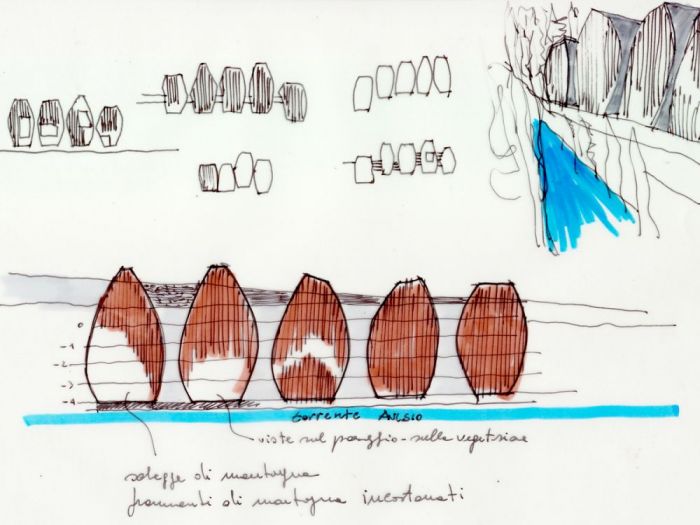 0
-1
-2
-3
-4
torrente Aviso
viste sul paesaggio - sulla vegetazione
schegge di montagna
frammenti di montagna incastonati